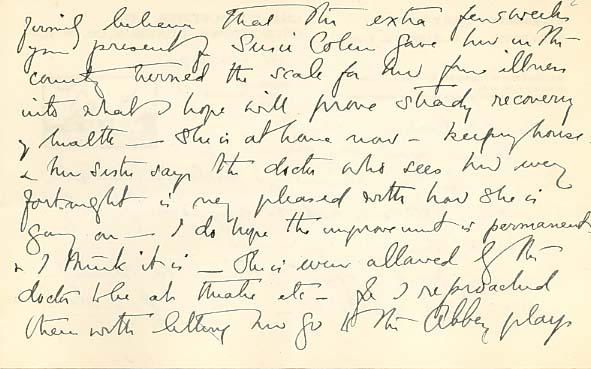 firmly believe that the extra few weeks
your present to Susie Colen gave her in the
country turned the scale for her from illness
into what I hope will prove steady recovery
of health — She is at home now – keeping house
& her sister says the doctor who sees her every
fortnight is very pleased with how she is
going on — I do hope the improvement is permanent
& I think it is — She is even allowed by the
doctor to be at theatre etc – for I reproached
them with letting her go to the Abbey plays